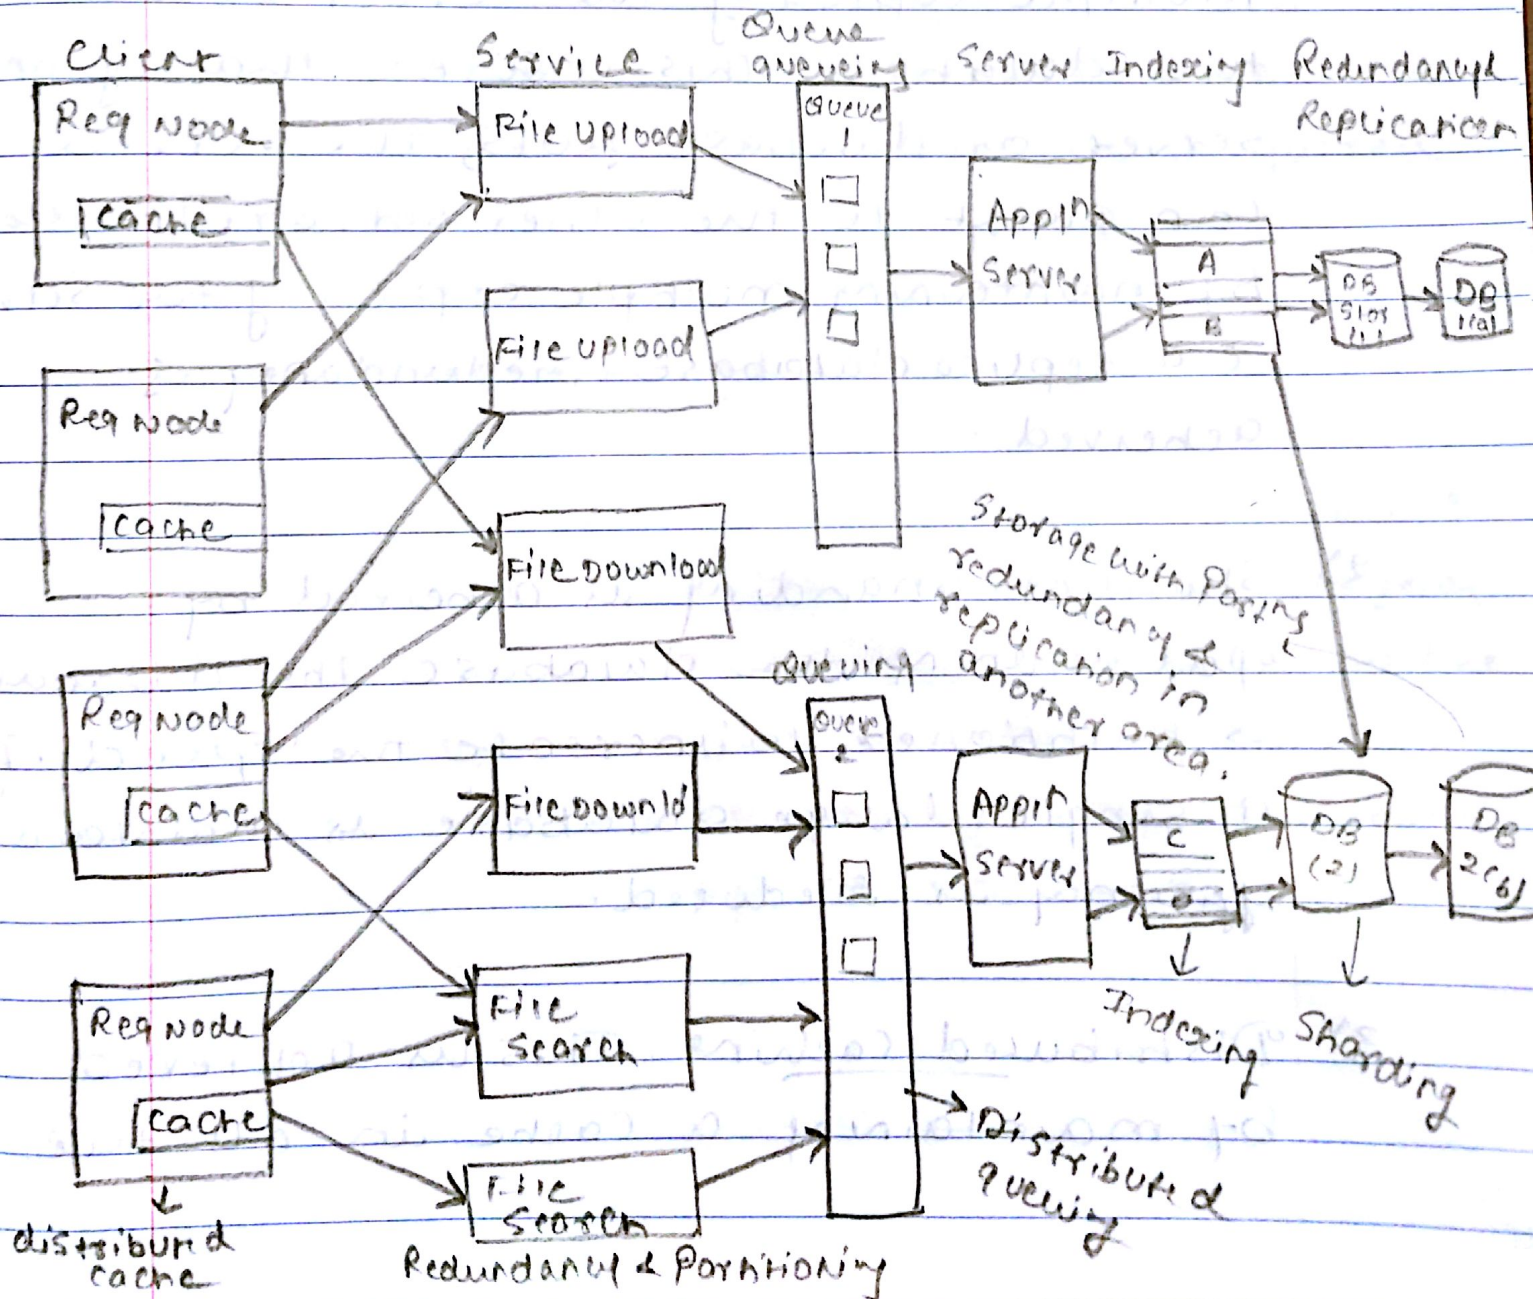 Client
Service
Queue
queueing
Server
Indexing
Redundancy &
Replication
Req Node
Cache
Req Node
Cache
Req Node
Cache
Req Node
Cache
distributed
cache
File Upload
File Upload
File Download
File Downld
File
Search
File
Search
Redundancy & Partitioning
Queue
1
Appln
Server
A
B
DB
DB
1(a)
Storage with Parting
redundancy &
replication in
another area.
Queuing
Queue
2
Appln
Server
C
DB
(2)
DB
2(b)
Indexing
Sharding
Distributed
queuing